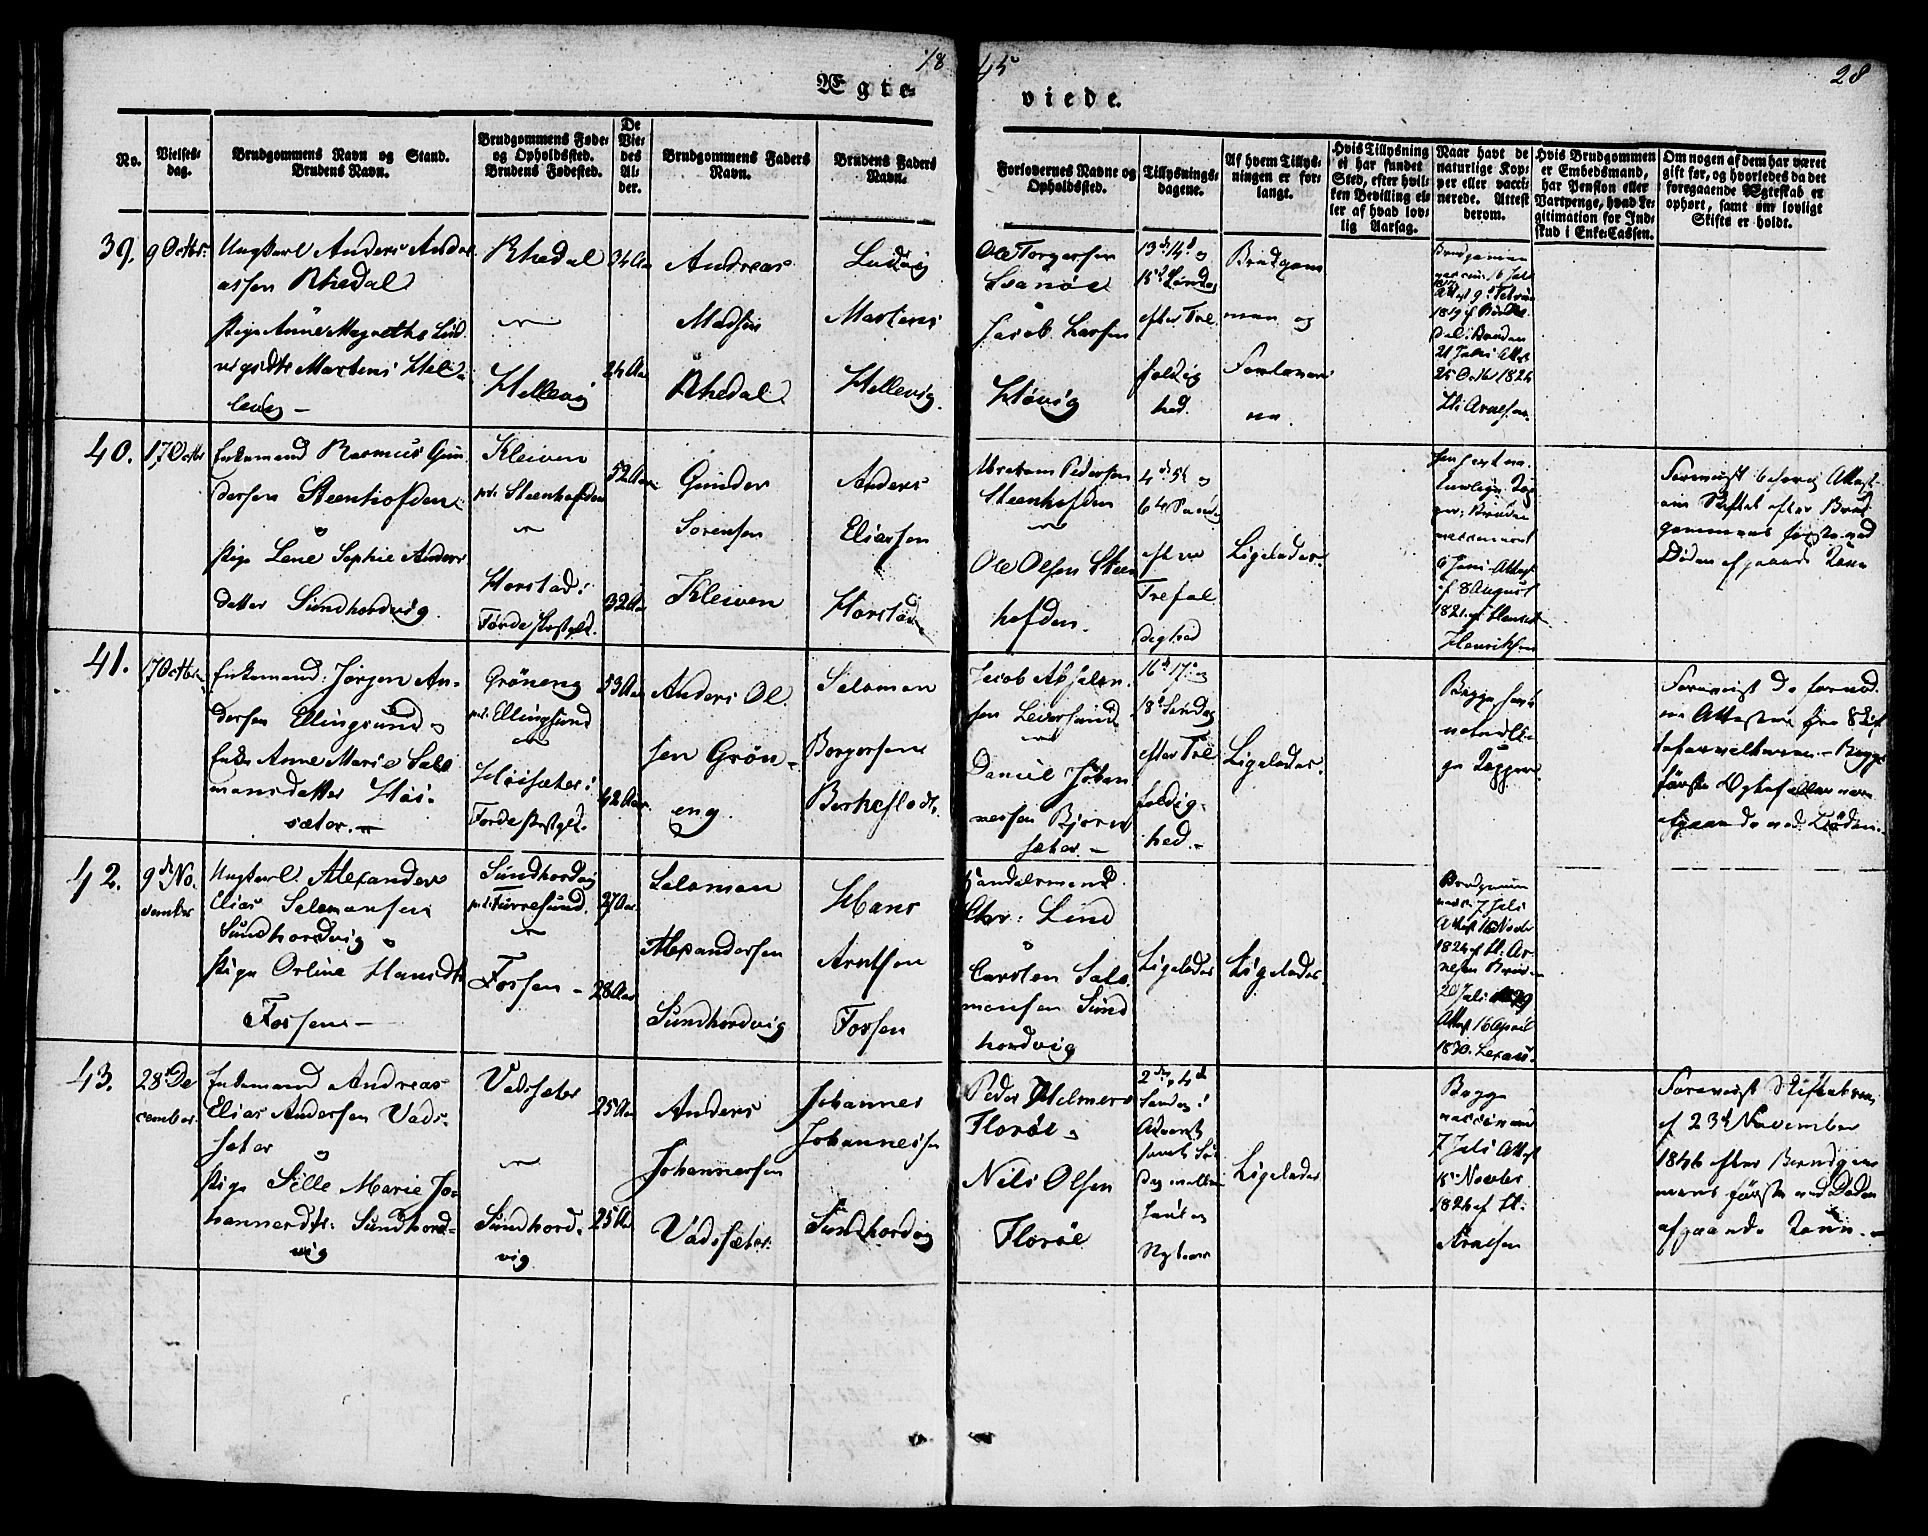 18 45
28
Ægte- viede.
No.
Vielses-
dag.
Brudgommens Navn og Stand.
Brudens Navn.
Brudgommens Føde-
og Opholdssted.
Brudens Fødested.
De
Vie-
des
Al-
der.
Brudgommens Faders
Navn.
Brudens Faders
Navn.
Forlovernes Navne og
Opholdssted.
Tillysnings-
dagene.
Af hvem Tillys-
ningen er for-
langt.
Hvis Tillysning
ei har fundet
Sted, efter hvil-
ken Bevilling el-
ler af hvad lov-
lig Aarsag.
Naar havt de
naturlige Kop-
per eller vacci-
nerede. Attest
derom.
Hvis Brudgommen
er Embedsmand,
har Pension eller
Vartpenge, hvad Le-
gitimation for Ind-
skud i Enke-Cassen.
Om nogen af dem har været
gift før, og hvorledes da det
foregaaende Ægteskab er
ophørt, samt om lovligt
Skifte er holdt.
39.
9 Octbr.
Ungkarl Anders Andre-
assen Rhedal
Pige Anne Magrethe Lud-
vigsdtr Martens Hel-
levig
Rhedal
Hellevig
34 Aar
24 Aar
Andreas
Madsen
Rhedal
Ludvig
Martens
Hellevig
Ole Torgersen
Svanöe
Jacob Larsen
Høvig
13de 14de og
15de Søndag
efter Tre
foldig
hed.
Brudgom
men og
Forlover
ne.
Brudgommen
Attest 9de Febru
1819 af
Bruden
21 Juli Attest
25 Octb 1824
Arnesen
40.
17 Octbr
Enkemand Rasmus Gun-
dersen Steenhofden
Pige Lene Sophie Anders
datter Sundhordvig
Kleiven
Steenhofden
Horstad i
Førde Præstgld.
52 Aar
32 Aar
Gunder
Sørensen
Kleiven
Anders
Eliassen
Horstad
Abraham Pedersen
Steenhofden
Ole Olsen Steen
hofden.
4de 5te og
6te Sønd
efter
Trefol
dighed
Ligeledes
6 Juni Attest
af 8 August
1821 af
Henriksen
Foreviist behørig Attest
om Skiftet efter Brud
gommens første ved
Døden afgaaende Kone
41.
17 Octbr
Enkemand Jørgen An-
dersen Ellingsund
Enke Anne Marie Salo
monsdatter Høi-
sæter.
Grøneng
Ellingsund
Høisæter i
Førde Præstgld.
53 Aar
42 Aar
Anders Ol-
sen Grøn-
eng
Salomon
Borgersen
Birkeflodt
Jacob Absalon-
sen Leversund
Daniel Johan
nessen Bjørn
sæter.
16de 17de og
18de Søndag
efter Tre
foldig-
hed.
Ligeledes.
Begge havt
naturli
ge Kopper
Foreviist de fornød
ne Attester fra Skif
teforvalteren. Begges
første Ægtefæller ere
afgaaede ved Døden.
42.
9de No-
vember
Ungkarl Alexander
Elias Salomonsen
Sundhordvig
Pige Orline Hansdtr
Fossen
Sundhordvig
Furresund
Fossen
27 Aar
28 Aar
Salomon
Alexandersen
Sundhordvig
Hans
Arntsen
Fossen
Handelsmand
Chr: Lind
Carsten Salo
monsen Sund
hordvig
Ligeledes
Ligeledes
Brudgommen
7 Juli
Attest 15 Novbr
1824 af H: Ar
nesen Bruden
20 Juli 1829
Attest 16 April
1830
43.
28de De
cember
Enkemand Andreas
Elias Andersen Vads-
sæter
Pige Sille Marie Jo-
hannesdtr: Sundhord-
vig
Vadssæter
Sundhord-
vig
25 Aar
25 Aar
Anders
Johannessen
Vadssæter
Johannes
Johannessen
Sundhordvig
Peder Helmers
Florøe
Nils Olsen
Florøe
2den, 4de
Søndag i
Advent
samt Søn
dag mellem
Juul og
Nytaar
Ligeledes
Begge
vaccinered
7 Juli Attest
15 Novbr
1824 af H:
Arnesen
Foreviist Skiftebrev
af 23de November
1846 efter Brudgom
mens første ved Døden
afgaaende Kone.